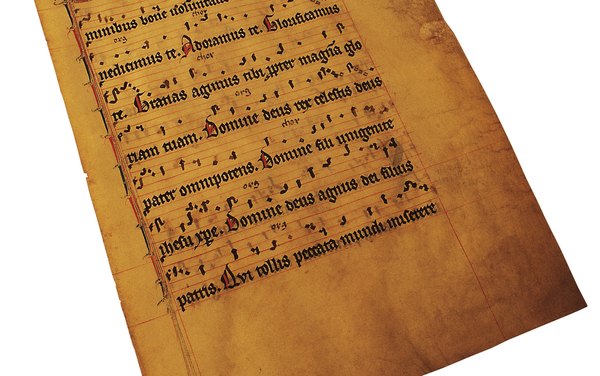 minibus bone uoluntatis
chor
org
nedicimus te. Adoramus te. Glorificamus
chor
te. Gratias agimus tibi ppter magnā glo
org
riam tuam. Domine deus rex celestis deus
chor
pater omnipotens. Domine fili unigenite
org
ihesu xpe. Domine deus agnus dei filius
org
patris. Qvi tollis peccata mundi miserere